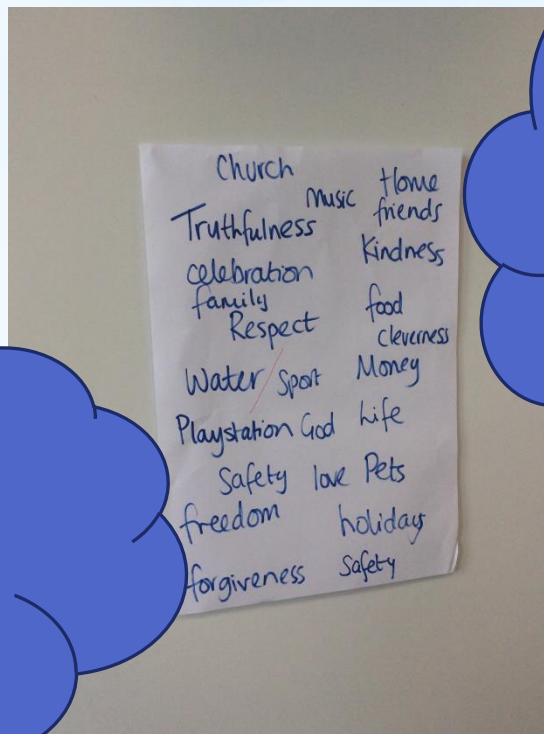 Church
Music Home
Truthfulness friends
Kindness
celebration
family food
Respect cleverness
Water Sport Money
Playstation God Life
Safety love Pets
freedom holidays
forgiveness Safety